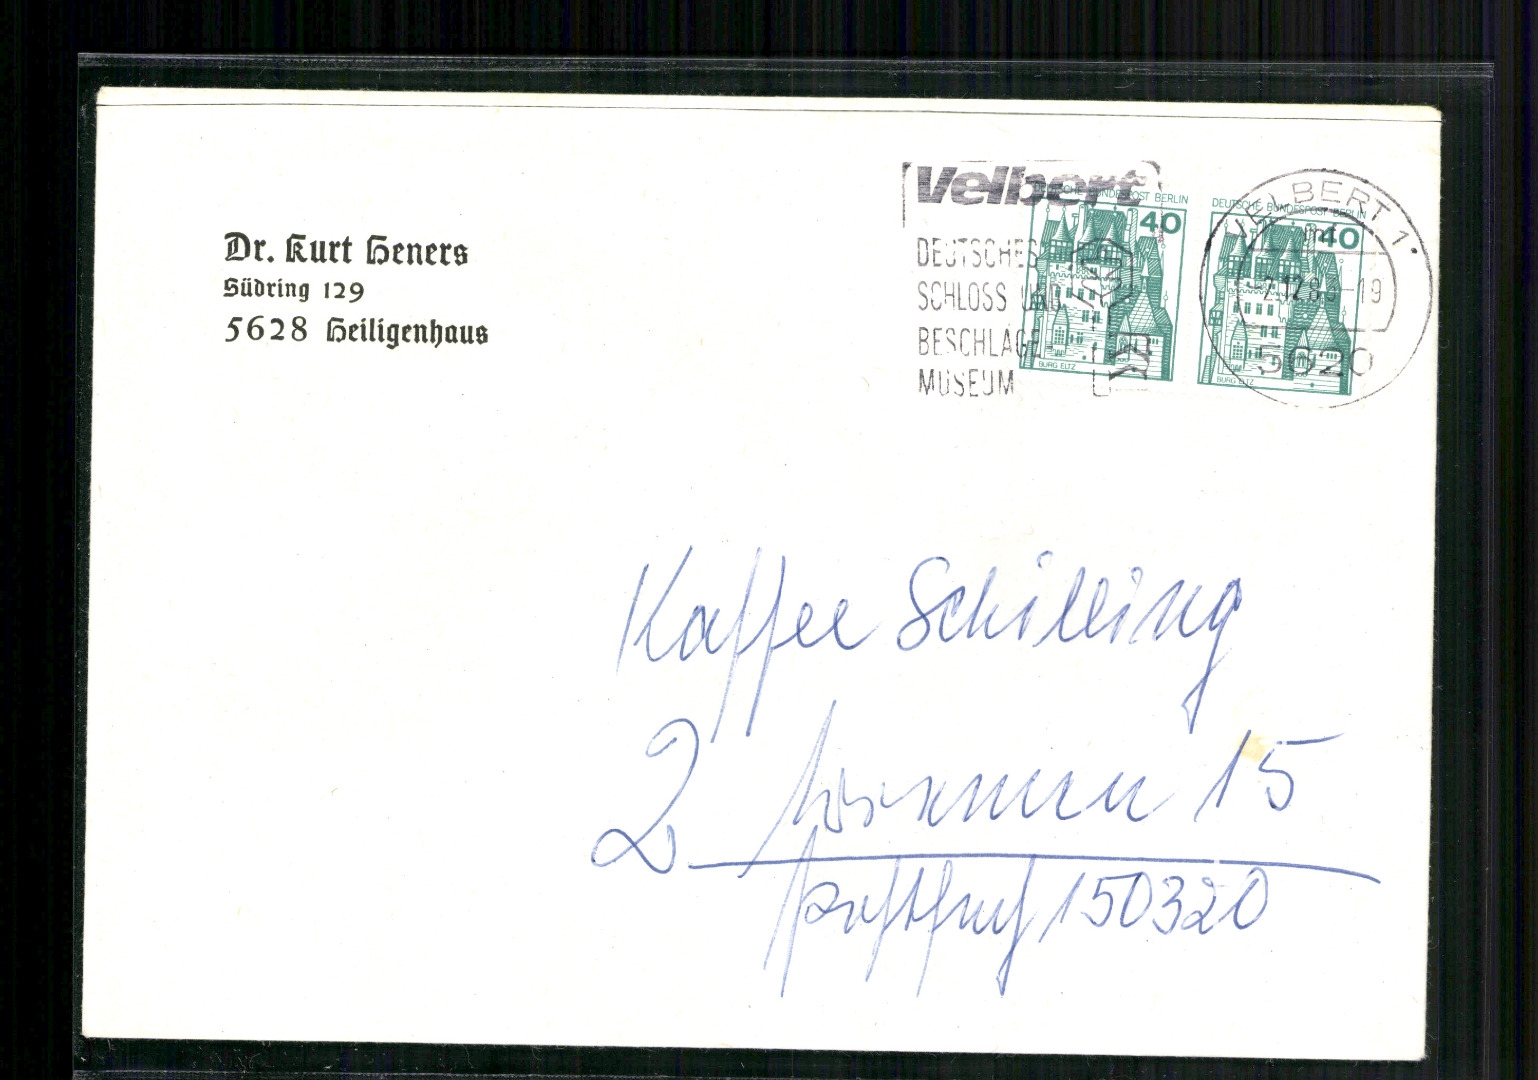 Dr. Kurt Heners
Südring 129
5628 Heiligenhaus
Velbert
DEUTSCHES
SCHLOSS UND
BESCHLÄGE-
MUSEUM
DEUTSCHE BUNDESPOST BERLIN
40
BURG ELTZ
DEUTSCHE BUNDESPOST BERLIN
40
BURG ELTZ
VELBERT 1
-19
5620
Kaffee Schilling
2 15
Postfach 150320